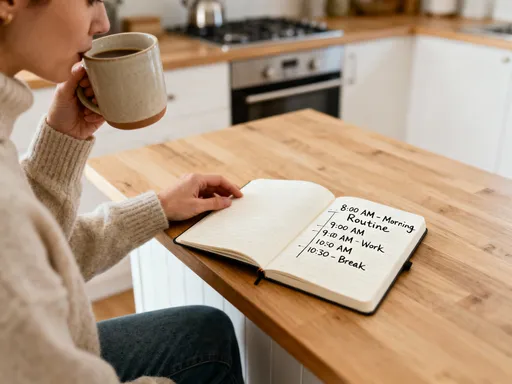 8:00 AM - Morning
Routine
9:00 AM
9:10 AM - Work
10:30 AM
10:30 - Break